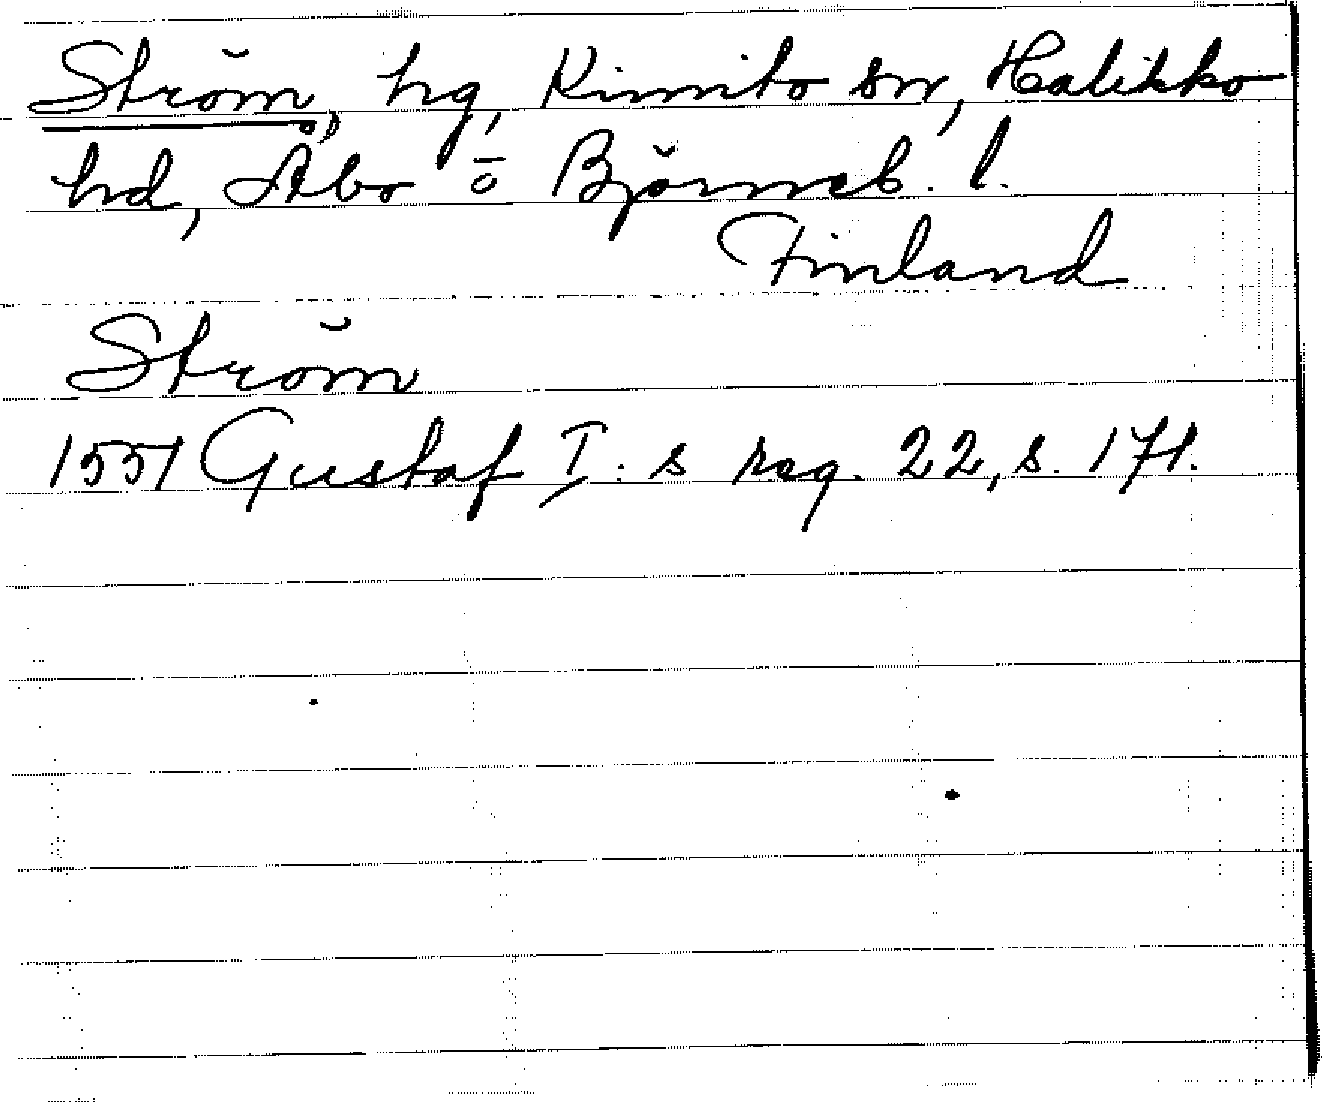 Ström, hg, Kimito sn, Halikko
hd, Åbo o Björneb. l.
Finland
Ström
1551 Gustaf I:s reg. 22, s. 171.